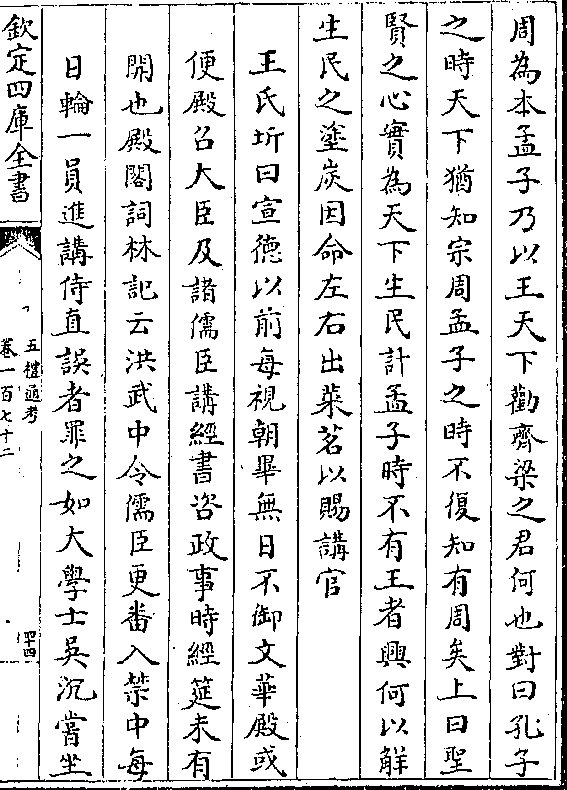 周為本孟子乃以王天下勸齊梁之君何也對曰孔子
之時天下猶知宗周孟子之時不復知有周矣上曰聖
賢之心實為天下生民計孟子時不有王者興何以解
生民之塗炭因命左右出菜茗以賜講官
王氏圻曰宣德以前每視朝畢無日不御文華殿或
便殿召大臣及諸儒臣講經書咨政事時經筵未有
開也殿閣詞林記云洪武中令儒臣更番入禁中每
日輪一員進講侍直誤者罪之如大學士吳沉嘗坐
欽定四庫全書
五禮通考
卷一百七十二
四十四